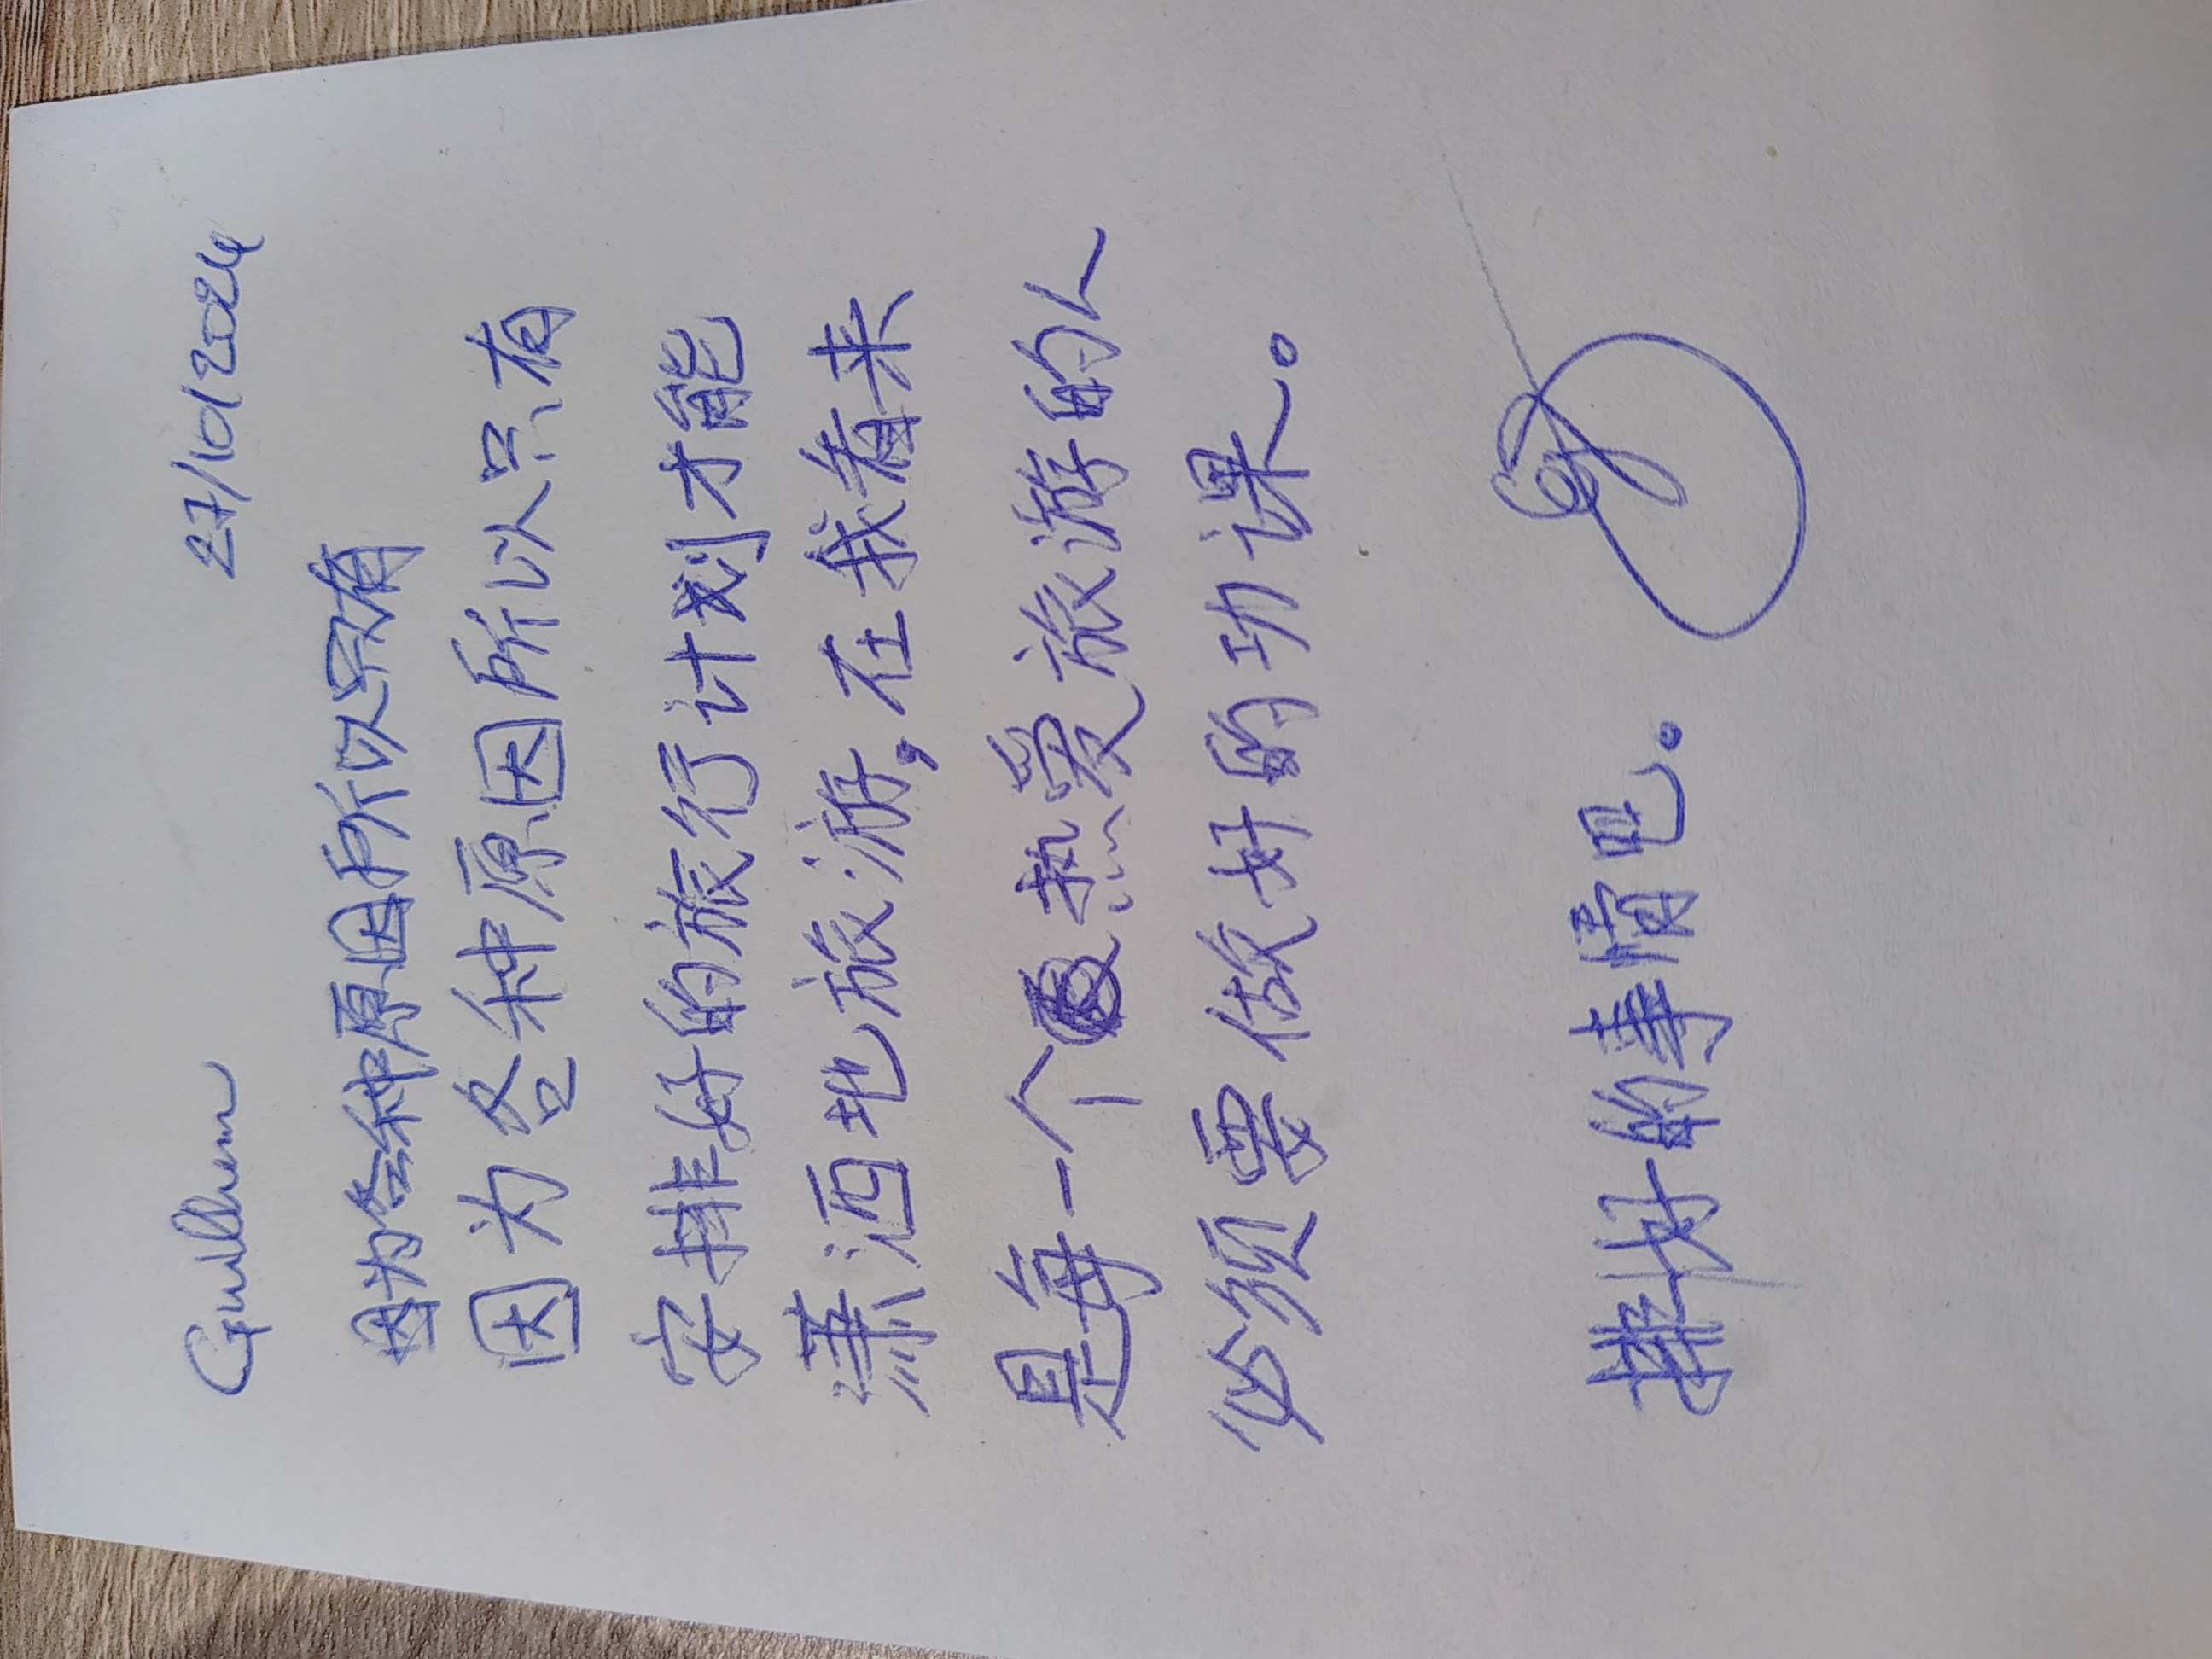 Guilhem 27/10/2024
因为各种原因所以只有
因为各种原因所以只有
安排好的旅行计划才能
潇洒地旅游,在我看来
是每一个热爱旅游的人
必须要做好的功课。
排好的事情吧。